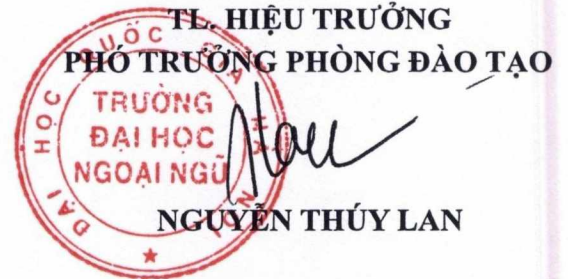 TL. HIỆU TRƯỞNG
PHÓ TRƯỞNG PHÒNG ĐÀO TẠO
ĐẠI HỌC QUỐC GIA HÀ NỘI
TRƯỜNG
ĐẠI HỌC
NGOẠI NGỮ
NGUYỄN THÚY LAN